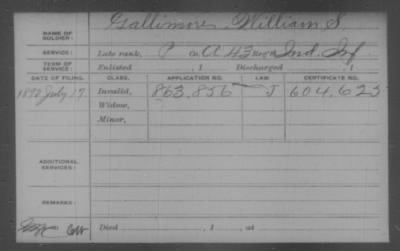 NAME OF SOLDIER: Gallimore, William S
SERVICE: Late rank, P Co. A, 43 Reg't Ind. Inf
TERM OF SERVICE: Enlisted , 1 Discharged , 1
DATE OF FILING. CLASS. APPLICATION NO. LAW. CERTIFICATE NO.
1890 July 17 Invalid, 863,856 J 604,625
Widow,
Minor,
ADDITIONAL SERVICES:
REMARKS:
Died , 1 , at